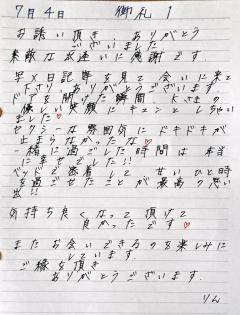 7月4日 御礼1
お誘い頂き、ありがとう
ございました
素敵な出逢いに感謝です。
写メ日記等を見て会いに来て
下さり、ありがとうございます。
ドアを開けた瞬間、Kさまの
優しい笑顔にキュンとしちゃい
ました♡
セクシーな雰囲気にドキドキが
止まらなかったな♡
一緒に過ごした時間は本当
に幸せでした!!
ベッドで密着して甘いひと時
を過ごせたことが最高の思い
出!!
気持ち良くなって頂けて
良かったです♡
またお会いできるのを楽しみに
しています。
ご縁を頂き
ありがとうございます。
りん